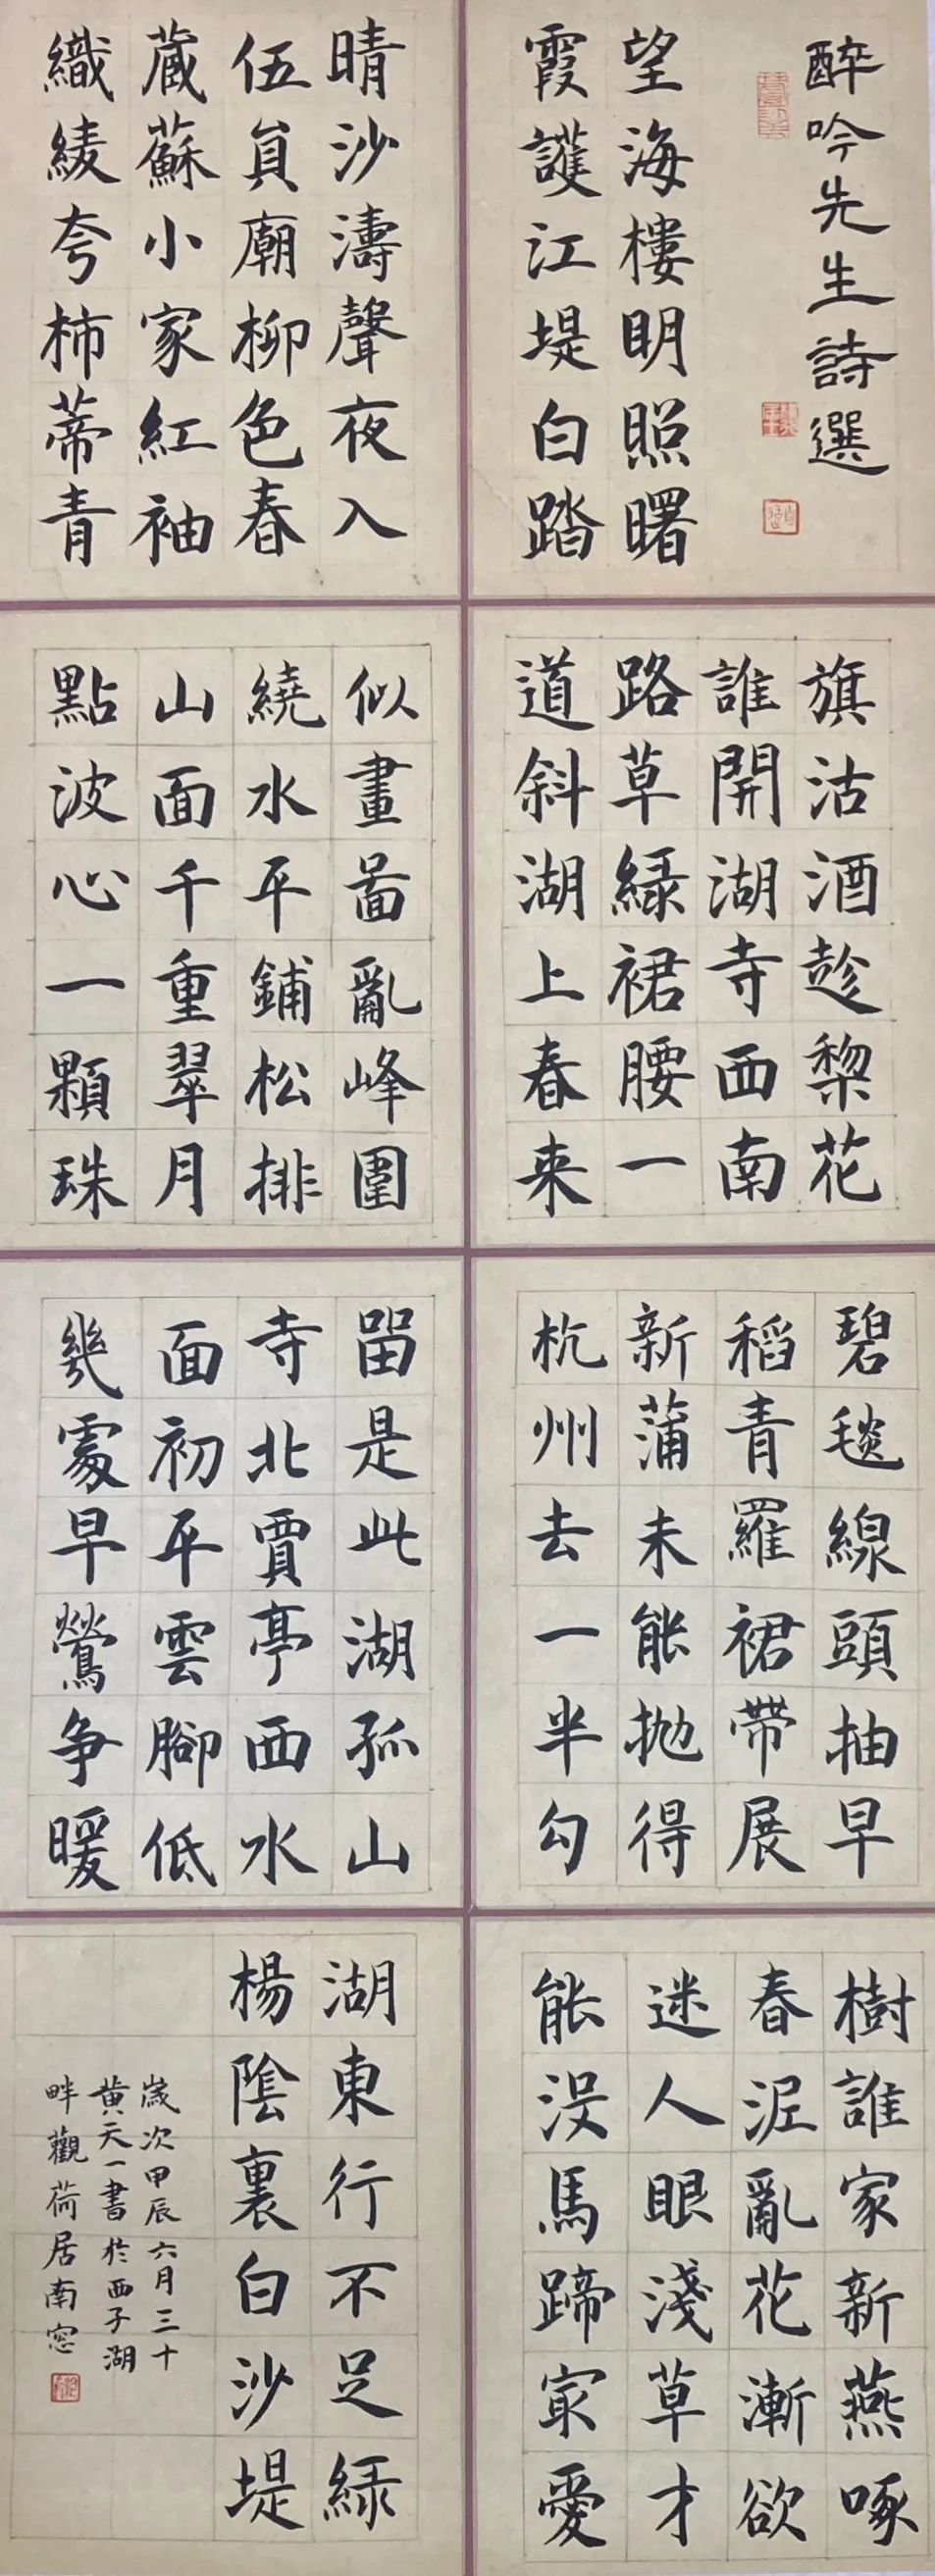 醉吟先生詩選
望海樓明照曙
霞護江堤白踏
晴沙濤聲夜入
伍員廟柳色春
藏蘇小家紅袖
織綾夸柿蒂青
旗沽酒趁棃花
誰開湖寺西南
路草綠裙腰一
道斜湖上春来
似畫啚亂峰圍
繞水平鋪松排
山面千重翠月
點波心一顆珠
碧毯線頭抽早
稻青羅裙帶展
新蒲未能抛得
杭州去一半勾
留是此湖孤山
寺北賈亭西水
面初平雲腳低
幾處早鶯争暖
樹誰家新燕啄
春泥亂花漸欲
迷人眼淺草才
能沒馬蹄冣愛
湖東行不足綠
楊陰裏白沙堤
歲次甲辰六月三十
黄天一書於西子湖
畔觀荷居南窓